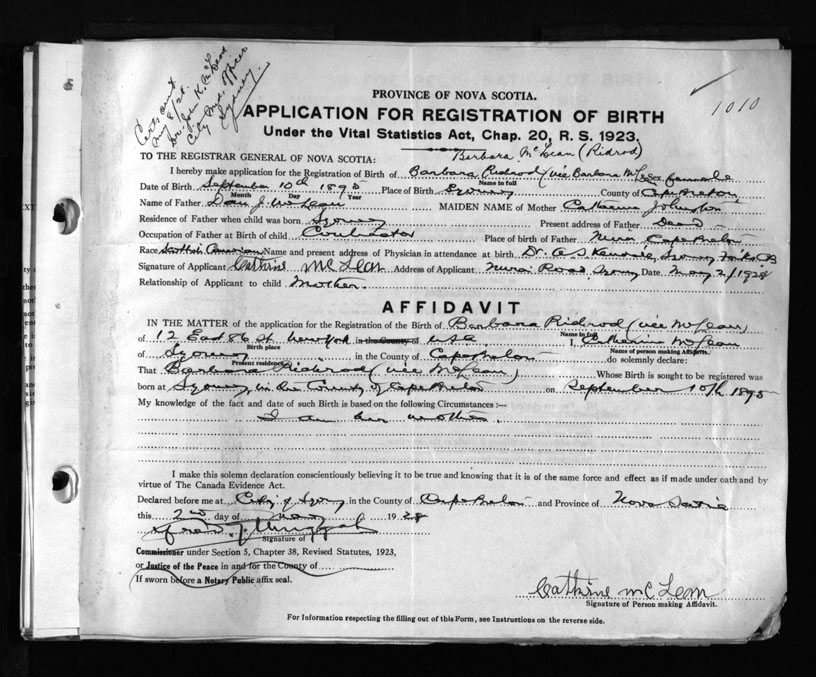 Certs out
May 8/28.
Dr. John K. McLeod
City Med. Officer
Sydney.
1010
PROVINCE OF NOVA SCOTIA.
APPLICATION FOR REGISTRATION OF BIRTH
Under the Vital Statistics Act, Chap. 20, R. S. 1923.
Barbara McLean (Ridrod)
TO THE REGISTRAR GENERAL OF NOVA SCOTIA:
I hereby make application for the Registration of Birth of Barbara Ridrod (née Barbara McLean) female
Name in full
Date of Birth September 10th 1895 Place of Birth Sydney County of Cape Breton
Month Day Year
Name of Father Dan J. McLean MAIDEN NAME of Mother Catherine Johnston
Residence of Father when child was born Sydney Present address of Father Dead
Occupation of Father at Birth of child Contractor Place of birth of Father Mira Cape Breton
Race Scottish Canadian Name and present address of Physician in attendance at birth Dr. A S Kendall, Sydney Forks CB
Signature of Applicant Cathrine McLean Address of Applicant Mira Road, Sydney Date May 2/1928
Relationship of Applicant to child Mother.
AFFIDAVIT
IN THE MATTER of the application for the Registration of the Birth of Barbara Ridrod (née McLean)
Name in full
of 12 East 86 St. New York in the County of U.S.A. I, Catherine McLean
Birth place Name of person making Affidavit.
of Sydney in the County of Cape Breton do solemnly declare:
Present residence
That Barbara Ridrod (née McLean) Whose Birth is sought to be registered was
born at Sydney, in the County of Cape Breton on September 10th 1895
My knowledge of the fact and date of such Birth is based on the following Circumstances :—
I am her mother.
I make this solemn declaration conscientiously believing it to be true and knowing that it is of the same force and effect as if made under oath and by
virtue of The Canada Evidence Act.
Declared before me at City of Sydney in the County of Cape Breton and Province of Nova Scotia
this 2nd day of May 1928
Signature of
Commissioner under Section 5, Chapter 38, Revised Statutes, 1923,
or Justice of the Peace in and for the County of
If sworn before a Notary Public affix seal.
Cathrine McLean
Signature of Person making Affidavit.
For Information respecting the filling out of this Form, see Instructions on the reverse side.